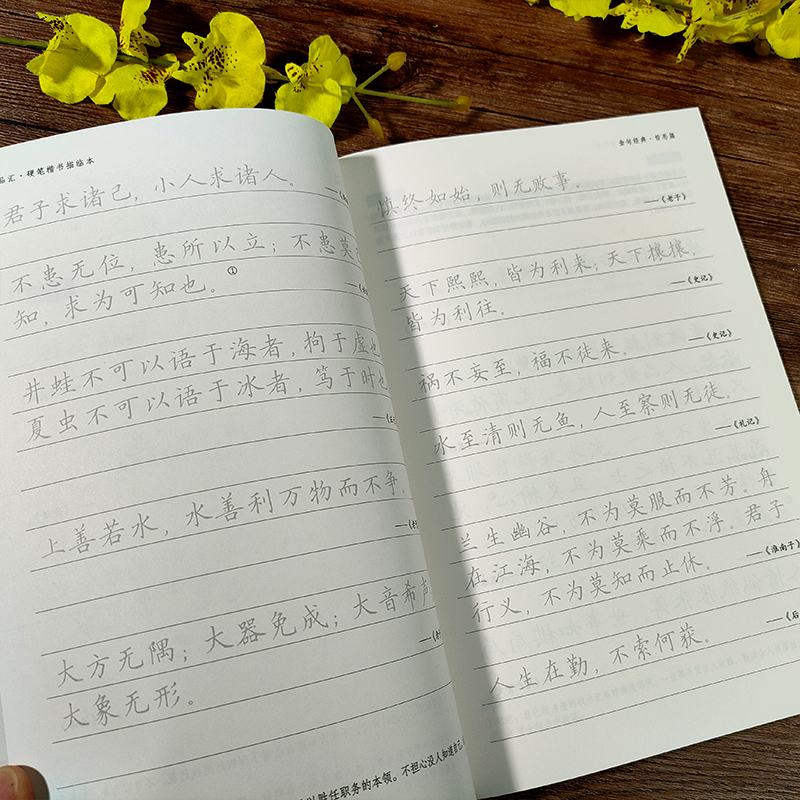 品汇·硬笔楷书描绘本
君子求诸己，小人求诸人。
不患无位，患所以立；不患莫
知，求为可知也。①
井蛙不可以语于海者，拘于虚也
夏虫不可以语于冰者，笃于时也
上善若水，水善利万物而不争。
大方无隅；大器免成；大音希声
大象无形。
以胜任职务的本领。不担心没人知道自己
金句经典·哲思篇
慎终如始，则无败事。
——《老子》
天下熙熙，皆为利来；天下攘攘，
皆为利往。
——《史记》
祸不妄至，福不徒来。
——《史记》
水至清则无鱼，人至察则无徒。
——《礼记》
兰生幽谷，不为莫服而不芳。舟
在江海，不为莫乘而不浮。君子
行义，不为莫知而止休。
——《淮南子》
人生在勤，不索何获。
——《后